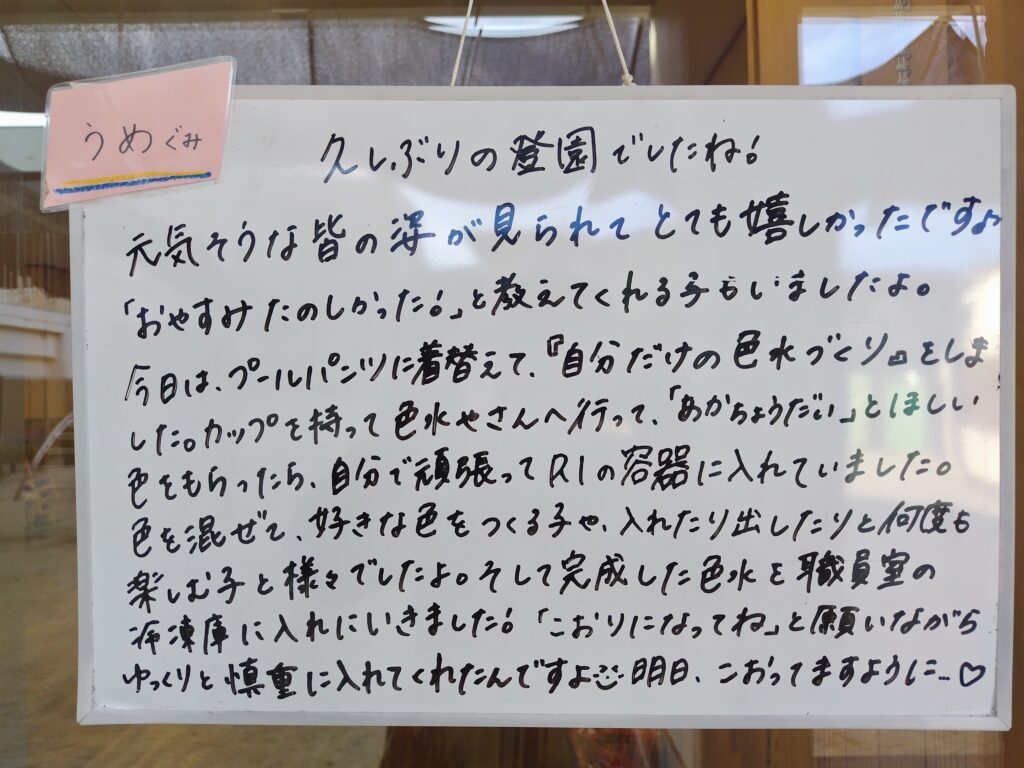 うめぐみ
久しぶりの登園でしたね!
元気そうな皆の姿が見られてとても嬉しかったですよ
「おやすみたのしかった!」と教えてくれる子もいましたよ。
今日は、プールパンツに着替えて、『自分だけの色水づくり』をしま
した。カップを持って色水やさんへ行って、「あかちょうだい」とほしい
色をもらったら、自分で頑張ってR1の容器に入れていました。
色を混ぜて、好きな色をつくる子や、入れたり出したりと何度も
楽しむ子と様々でしたよ。そして完成した色水を職員室の
冷凍庫に入れにいきました!「こおりになってね」と願いながら
ゆっくりと慎重に入れてくれたんですよ☺明日、こおってますように…♡